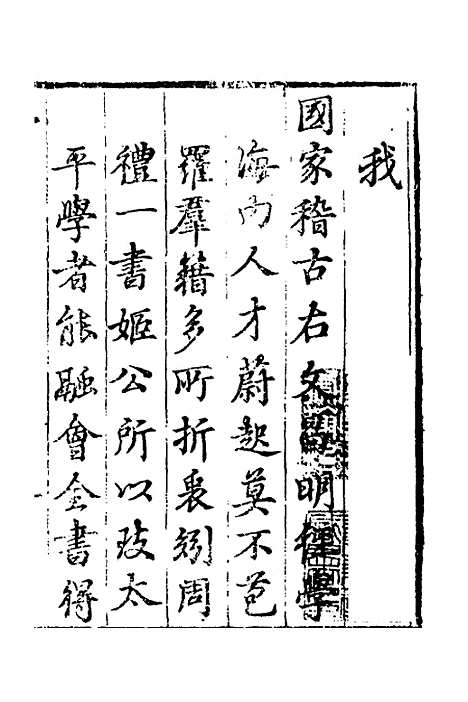 我
國家稽古右文昌明經學
海內人才蔚起莫不苞
羅羣籍多所折衷矧周
禮一書姬公所以致太
平學者能融會全書得